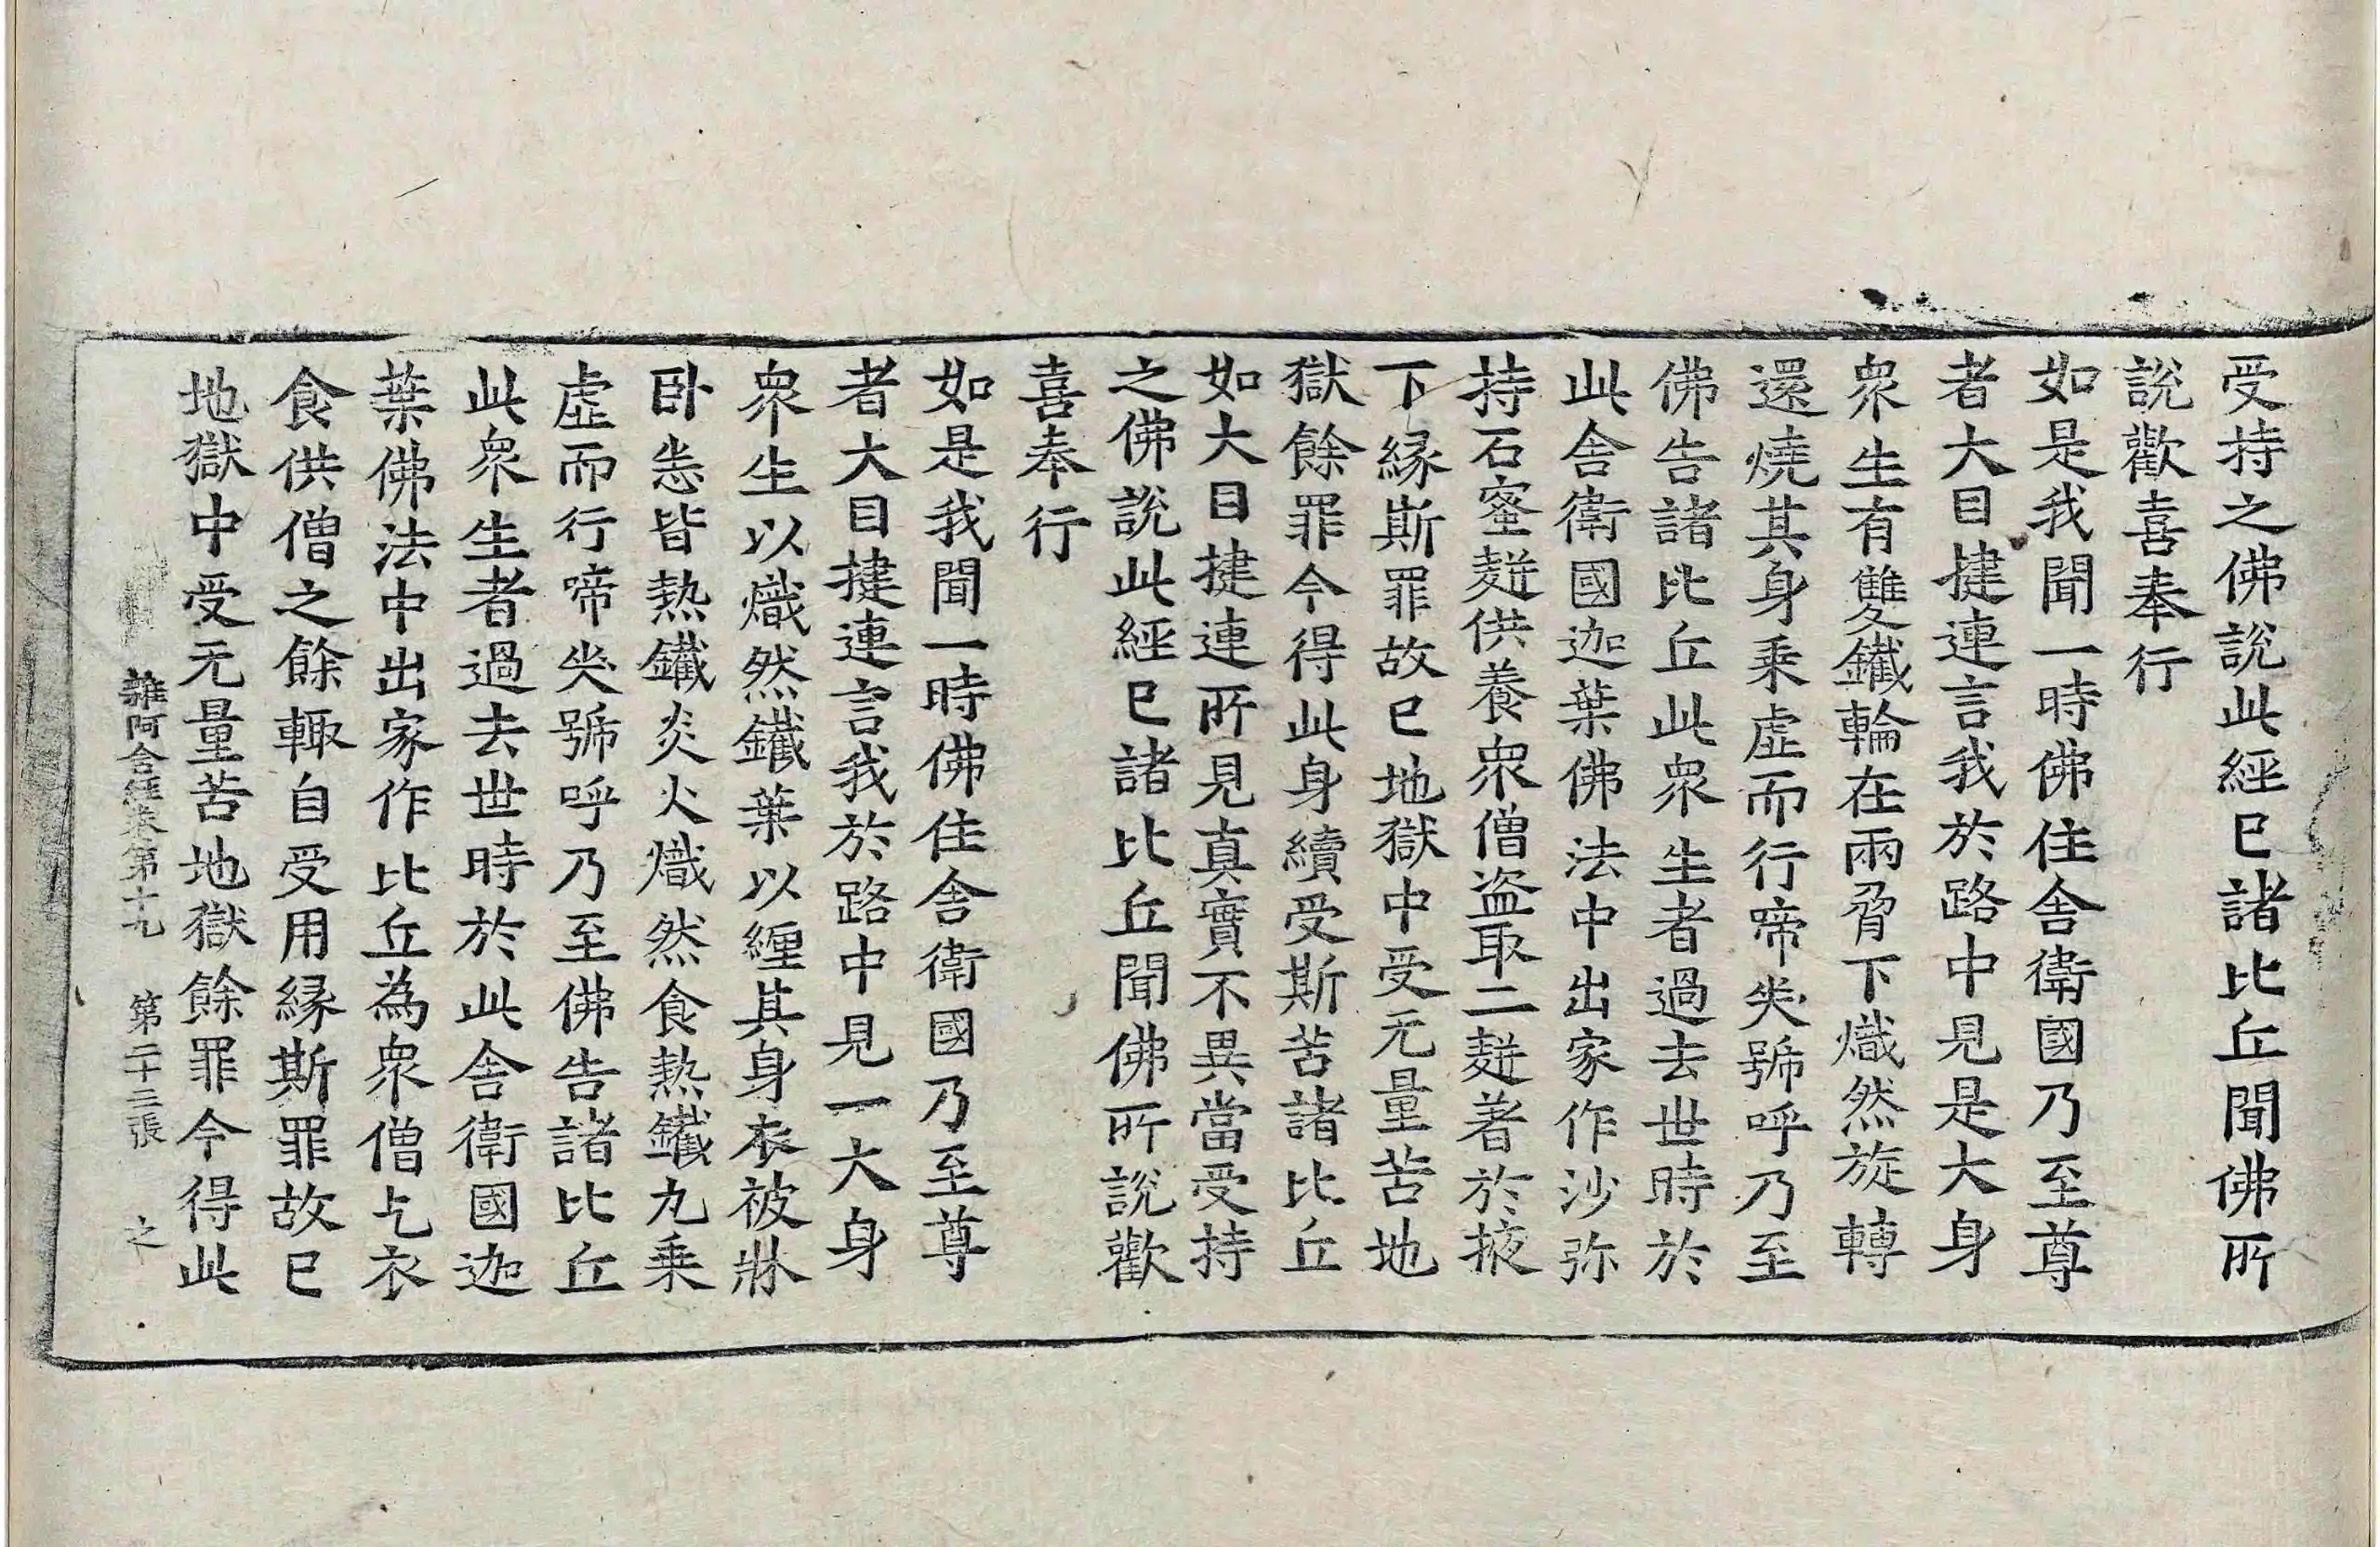 受持之佛說此經已諸比丘聞佛所
說歡喜奉行
如是我聞一時佛住舍衛國乃至尊
者大目揵連言我於路中見是大身
衆生有雙鐵輪在兩脅下熾然旋轉
還燒其身乘虛而行啼哭號呼乃至
佛告諸比丘此衆生者過去世時於
此舍衛國迦葉佛法中出家作沙弥
持石蜜麨供養衆僧盜取二麨著於掖
下縁斯罪故已地獄中受无量苦地
獄餘罪今得此身續受斯苦諸比丘
如大目揵連所見真實不異當受持
之佛說此經已諸比丘聞佛所說歡
喜奉行
如是我聞一時佛住舍衛國乃至尊
者大目揵連言我於路中見一大身
衆生以熾然鐵葉以纏其身衣被牀
卧悉皆熱鐵炎火熾然食熱鐵丸乘
虛而行啼哭號呼乃至佛告諸比丘
此衆生者過去世時於此舍衛國迦
葉佛法中出家作比丘為衆僧乞衣
食供僧之餘輙自受用縁斯罪故已
地獄中受无量苦地獄餘罪今得此
雜阿含經卷第十九 第二十三張 之